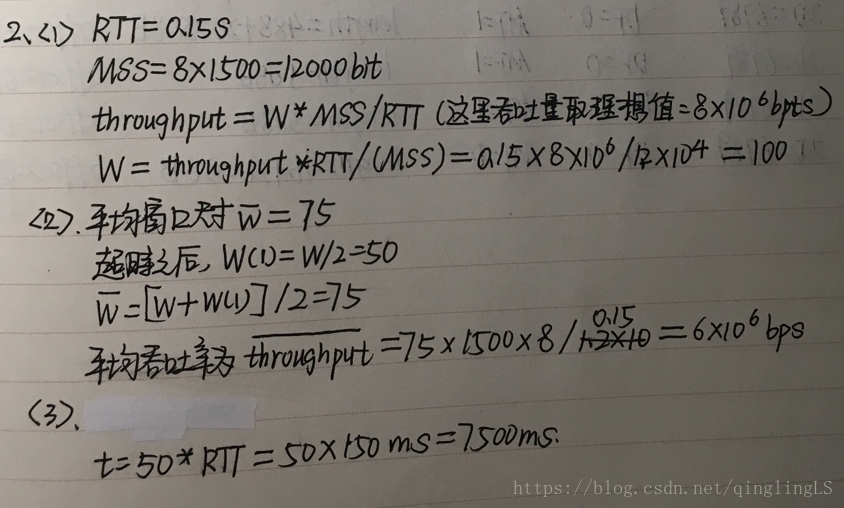 2、<1> RTT=0.15s
MSS=8×1500=12000bit
throughput=W*MSS/RTT (这里吞吐量取理想值=8×10⁶bpts)
W=throughput*RTT/(MSS)=0.15×8×10⁶/1.2×10⁴=100
<2>.平均窗口尺寸w̅=75
超时之后,W(1)=W/2=50
W̅=[W+W(1)]/2=75
平均吞吐率为 throughput=75×1500×8/0.15=6×10⁶bps
<3>、
t=50*RTT=50×150ms=7500ms.
https://blog.csdn.net/qinglingLS